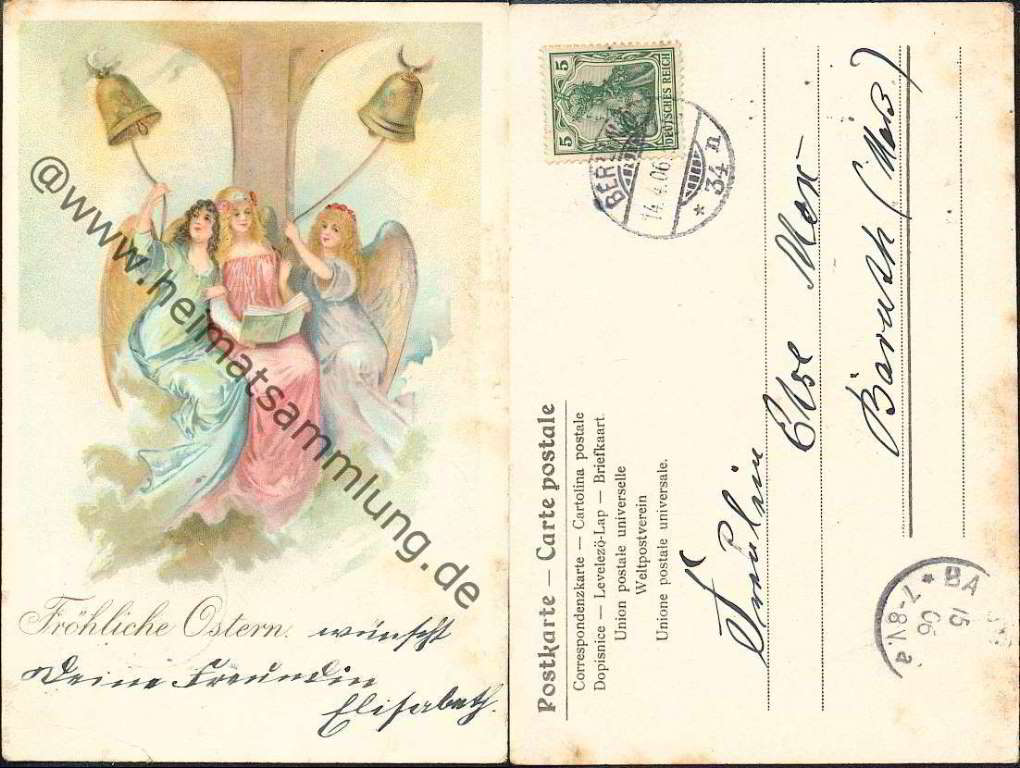 @www.heimatsammlung.de
Fröhliche Ostern. wünscht
Deine Freundin
Elisabeth.
5 5
DEUTSCHES REICH
BER
14.4.06
* 34 n
Postkarte — Carte postale
Correspondenzkarte — Cartolina postale
Dopisnice — Levelezö-Lap — Briefkaart
Union postale universelle
Weltpostverein
Unione postale universale.
Fräulein
Else
Baruth (Mark)
BA
15
06
* 7-8V. a